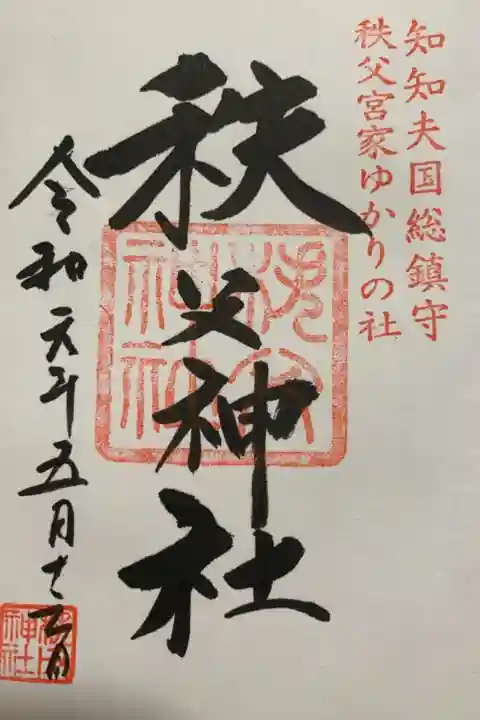 知知夫国総鎮守
秩父宮家ゆかりの社
秩父神社
秩父神社
令和元年五月十
神社